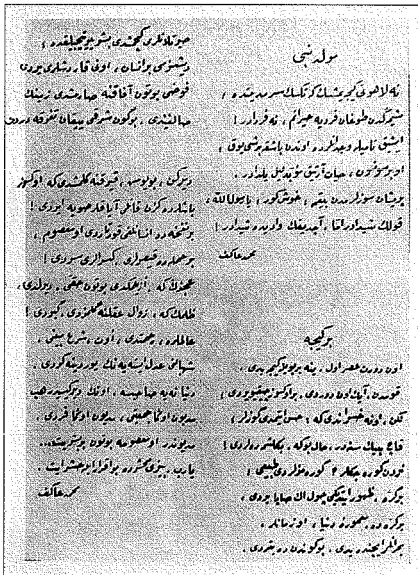 مولد نبى
نه لاهوتى كيجه‌يمشسك كه تكسك سرمديتده ؛
شبكدن طوغان فردايه حيرانم ، نه فردادر !
ايشق ناميله وجدانلرده اوندن باشقه بر شى يوق ؛
او بر سونسون ، حيات آرتيق مؤبد ليل يلدادر .
پريشان سوزلرمدن بيقمه ، خوش كور ، يا رسول الله ،
قولك شيدادر اما ، آچديغك وادى ده شيدادر !
محمد عاكف
بر كيجه
اون درت عصر اول ، ينه بر بويله كيجه‌يدى ،
قومدن ، آيك اون دردى ، بر اوكسوز چيقيويردى !
لكن ، او نه خسراندى كه : حس ايتمدى كوزلر ؛
قاچ بيك سنه‌در ، حال بوكه ، بكلشمه‌ده‌لردى !
نردن كوره‌جكلر ؟ كوره‌مزلردى طبيعى :
بر كره ، ظهور ايتديكى چول اك صاپا يردى ،
بر كره ده ، معمورهٔ دنيا ، او زمانلر ،
بحرانلر ايچنده‌يدى ، بوكوندن ده بتردى .
صيرتلانلرى كچمشدى بشر ييرتيجيلقده ؛
ديشسزمى بر انسان ، اونى قارداشلرى يردى !
فوضى بوتون آفاقنه صارمشدى زمينك
صالغيندى ، بوكون شرقى ييقان تفرقه دردى .
ديركن ، بويومش ، قيرقنه كلمشدى كه اوكسز
باشلرده كزن قانلى آياقلر صويه ايردى !
بر نفحه‌ده انسانلغى قورتاردى او معصوم ،
بر حمله‌ده قيصرلرى ، كسرالرى سردى !
عجزك كه ، ازيلمكدى بوتون حقى ، ديريلدى ،
ظلمك كه ، زوال عقلنه كلمزدى ، كبردى !
عالملره ، رحمتدى ، اوت ، شرع مبينى ،
شهبالنى عدل ايسته‌يه‌نك يوردينه كردى .
دنيا نه‌يه صاحبسه ، اونك ويركيسيدر هپ
مديون اوكا جمعيتى ، مديون اوكا فردى .
مديوندر او معصومه بوتون بر بشريت ...
يارب ، بزى محشرده بو اقرار ايله حشر ايت .
محمد عاكف